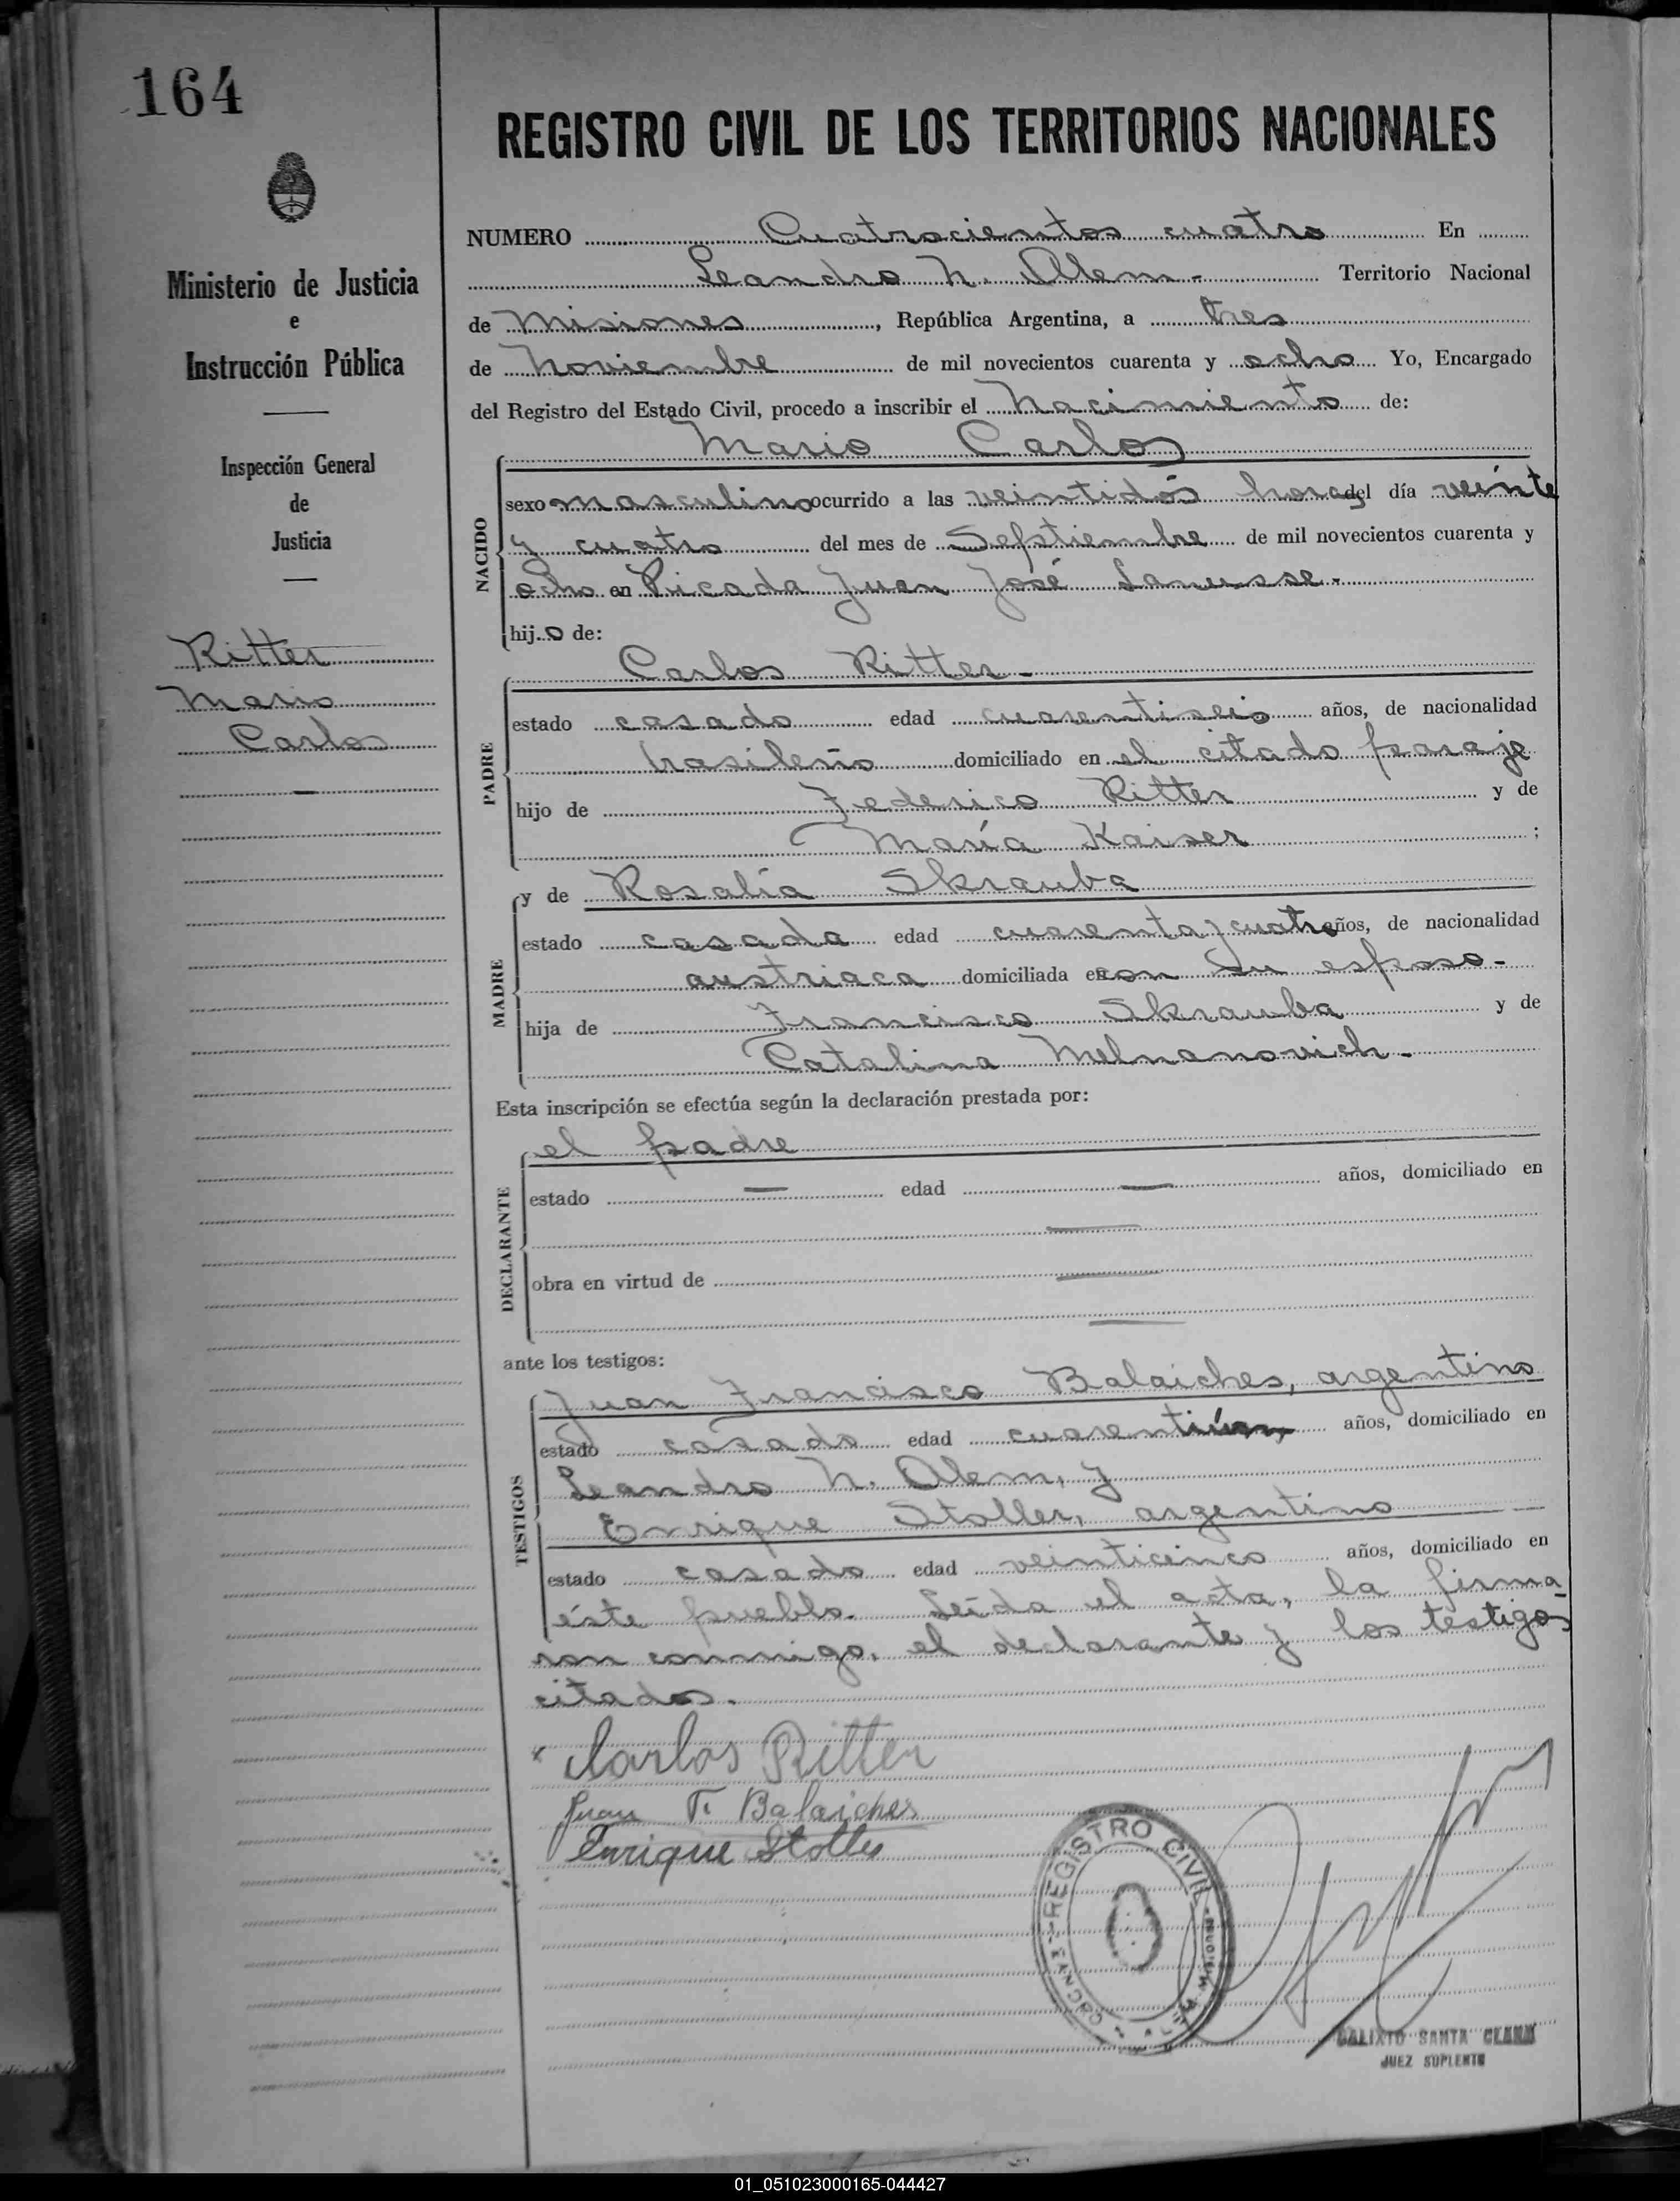 164
REGISTRO CIVIL DE LOS TERRITORIOS NACIONALES
Ministerio de Justicia
e
Instrucción Pública
Inspección General
de
Justicia
Ritter
Mario
Carlos
NUMERO Cuatrocientos cuatro En
Leandro N. Alem - Territorio Nacional
de Misiones, República Argentina, a tres
de Noviembre de mil novecientos cuarenta y ocho Yo, Encargado
del Registro del Estado Civil, procedo a inscribir el Nacimiento de:
Mario Carlos
NACIDO
sexo masculino ocurrido a las veintidós horas del día veinte
y cuatro del mes de Septiembre de mil novecientos cuarenta y
ocho en Picada Juan José Lanusse.
hijo de:
Carlos Ritter -
PADRE
estado casado edad cuarentiseis años, de nacionalidad
brasileño domiciliado en el citado paraje
hijo de Federico Ritter y de
María Kaiser ;
y de Rosalía Skrauba
MADRE
estado casada edad cuarenta y cuatro años, de nacionalidad
austriaca domiciliada en con su esposo -
hija de Francisco Skrauba y de
Catalina Melnanovich.
Esta inscripción se efectúa según la declaración prestada por:
el padre
DECLARANTE
estado — edad — años, domiciliado en
obra en virtud de
ante los testigos:
Juan Francisco Balaiches, argentino
TESTIGOS
estado casado edad años, domiciliado en
Leandro N. Alem, y
Enrique Stoller, argentino
estado casado edad veinticinco años, domiciliado en
éste pueblo. Leída el acta, la firma-
ron conmigo, el declarante y los testigos
citados.
Carlos Ritter
Juan F. Balaiches
Enrique Stoller
REGISTRO CIVIL
CALIXTO SANTA CLARA
JUEZ SUPLENTE
01_051023000165-044427